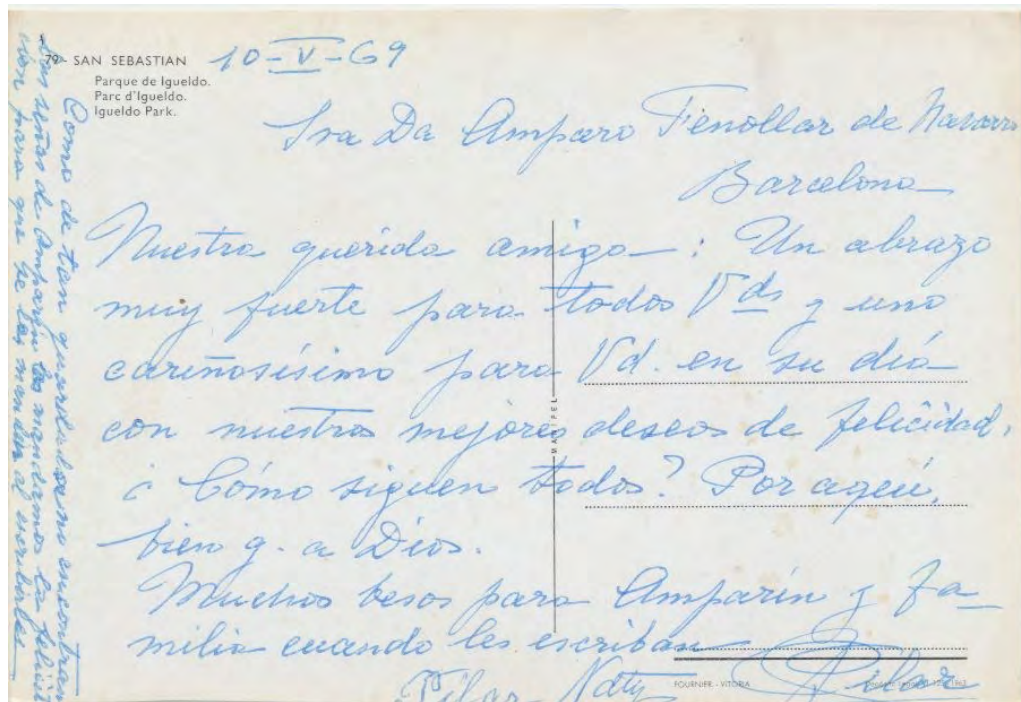 79- SAN SEBASTIAN
Parque de Igueldo.
Parc d'Igueldo.
Igueldo Park.
10-V-69
Sra Da Amparo Fenollar de Navarro
Barcelona
Nuestra querida amiga: Un abrazo
muy fuerte para todos Vds y uno
cariñosísimo para Vd. en su día
con nuestros mejores deseos de felicidad.
¿Cómo siguen todos? Por aquí,
bien g. a Dios.
Muchos besos para Amparín y fa-
milia cuando les escriban
Pilar Naty Pilar
MANIPEL
FOURNIER - VITORIA
Como de tan no encontramos
las señas de Amparín les mandamos la felicita
ción para que se las manden al escribirles